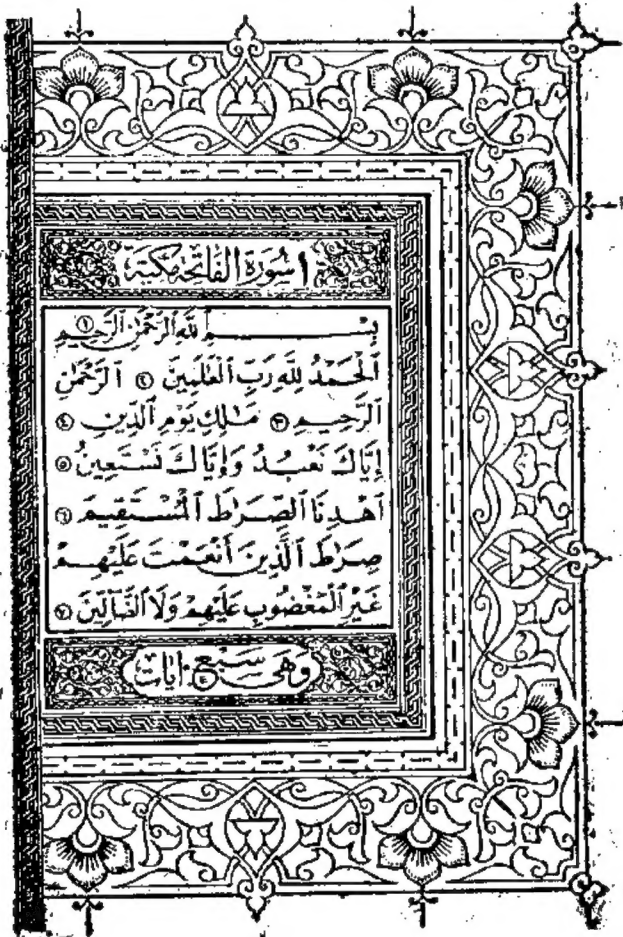 ١ سُورَةُ الفَاتِحَةِ مَكِّيَّة
بِسْمِ ٱللَّهِ ٱلرَّحْمَٰنِ ٱلرَّحِيمِ ١
ٱلْحَمْدُ لِلَّهِ رَبِّ ٱلْعَٰلَمِينَ ٢ ٱلرَّحْمَٰنِ
ٱلرَّحِيمِ ٣ مَٰلِكِ يَوْمِ ٱلدِّينِ ٤
إِيَّاكَ نَعْبُدُ وَإِيَّاكَ نَسْتَعِينُ ٥
ٱهْدِنَا ٱلصِّرَٰطَ ٱلْمُسْتَقِيمَ ٦
صِرَٰطَ ٱلَّذِينَ أَنْعَمْتَ عَلَيْهِمْ
غَيْرِ ٱلْمَغْضُوبِ عَلَيْهِمْ وَلَا ٱلضَّآلِّينَ ٧
وَهِىَ سَبْع آيَات